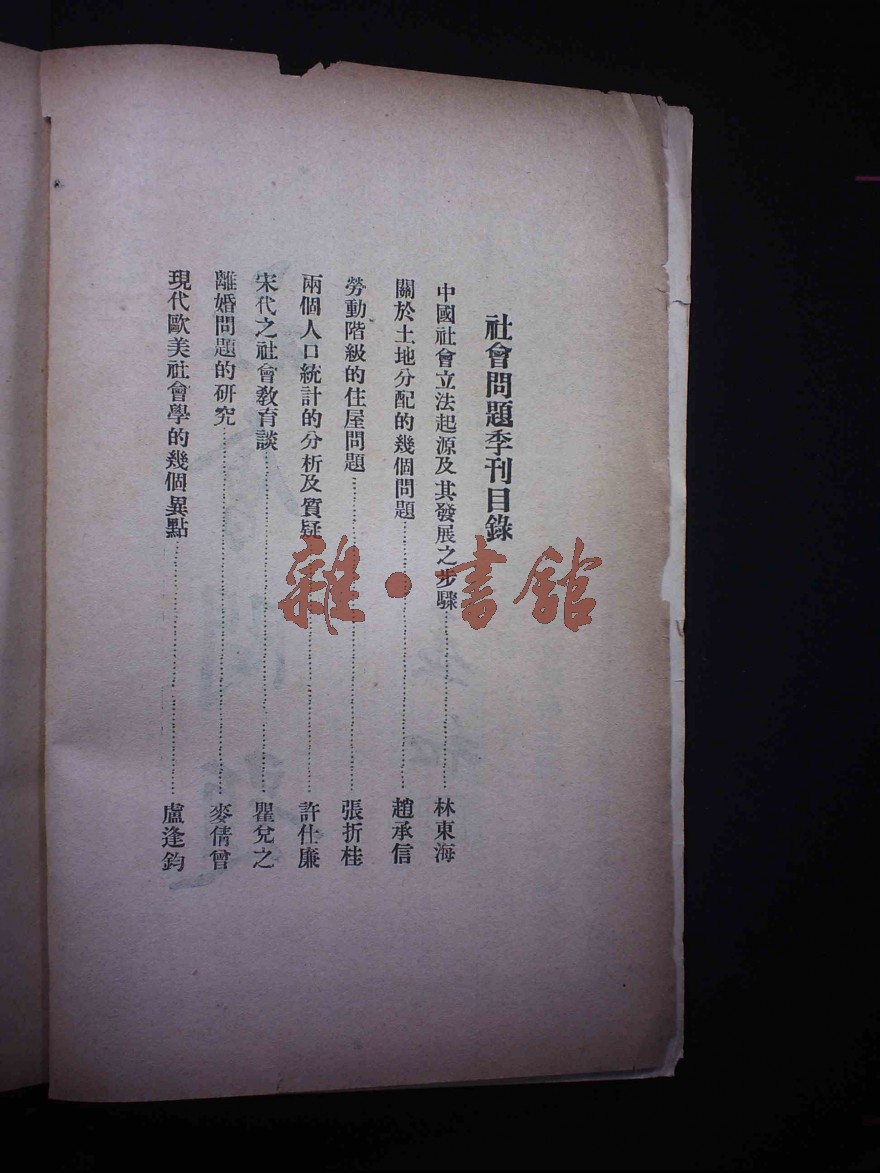 社會問題季刊目錄
中國社會立法起源及其發展之步驟……林東海
關於土地分配的幾個問題……趙承信
勞動階級的住屋問題……張折桂
兩個人口統計的分析及質疑……許仕廉
宋代之社會教育談……瞿兌之
離婚問題的研究……麥倩曾
現代歐美社會學的幾個異點……盧逢鈞
雜·書館